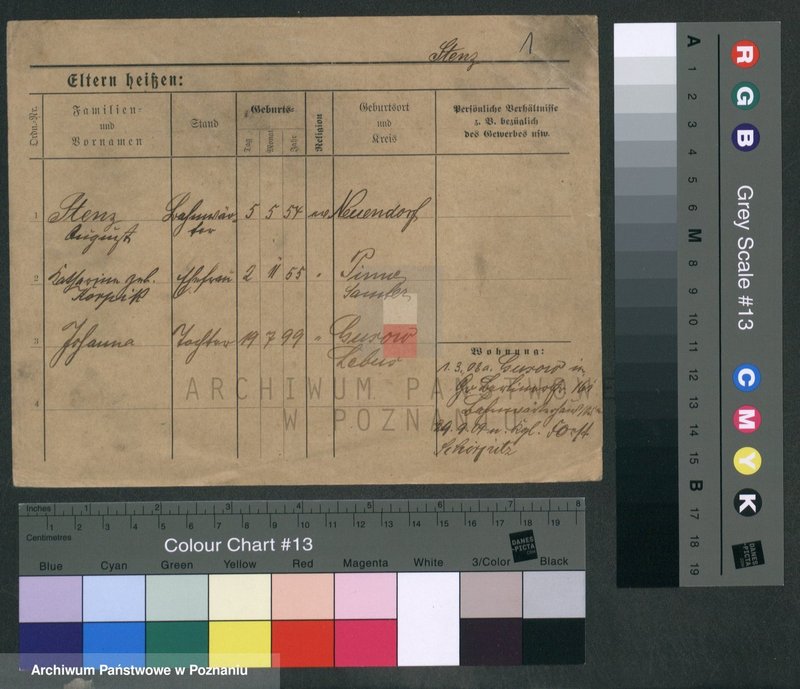 Stenz 1
Eltern heißen:
Ordn.-Nr.
Familien-
und
Vornamen
Stand
Geburts-
Tag
Monat
Jahr
Religion
Geburtsort
und
Kreis
Persönliche Verhältnisse
z. B. bezüglich
des Gewerbes usw.
1 Stenz Bahnwär- 5 5 54 ev Neuendorf
August ter
2 Katharine geb. Ehefrau 2 11 55 " Pinne
Korpik Samter
3 Johanna Tochter 19 7 99 " Gusow
Lebus
4
Wohnung:
1.3.08 a. Gusow in
Gr. Berlinerstr.
29.9.09 n. Kgl. Forst
ARCHIWUM PAŃSTWOWE
W POZNANIU
Inches 1 2 3 4 5 6 7 8
1 2 3 4 5 6 7 8 9 10 11 12 13 14 15 16 17 18 19
Centimetres
Colour Chart #13
DANES
-PICTA
.COM
Blue Cyan Green Yellow Red Magenta White 3/Color Black
Archiwum Państwowe w Poznaniu
R G B
Grey Scale #13
C M Y K
DANES
-PICTA
.COM
A 1 2 3 4 5 6 M 8 9 10 11 12 13 14 15 B 17 18 19